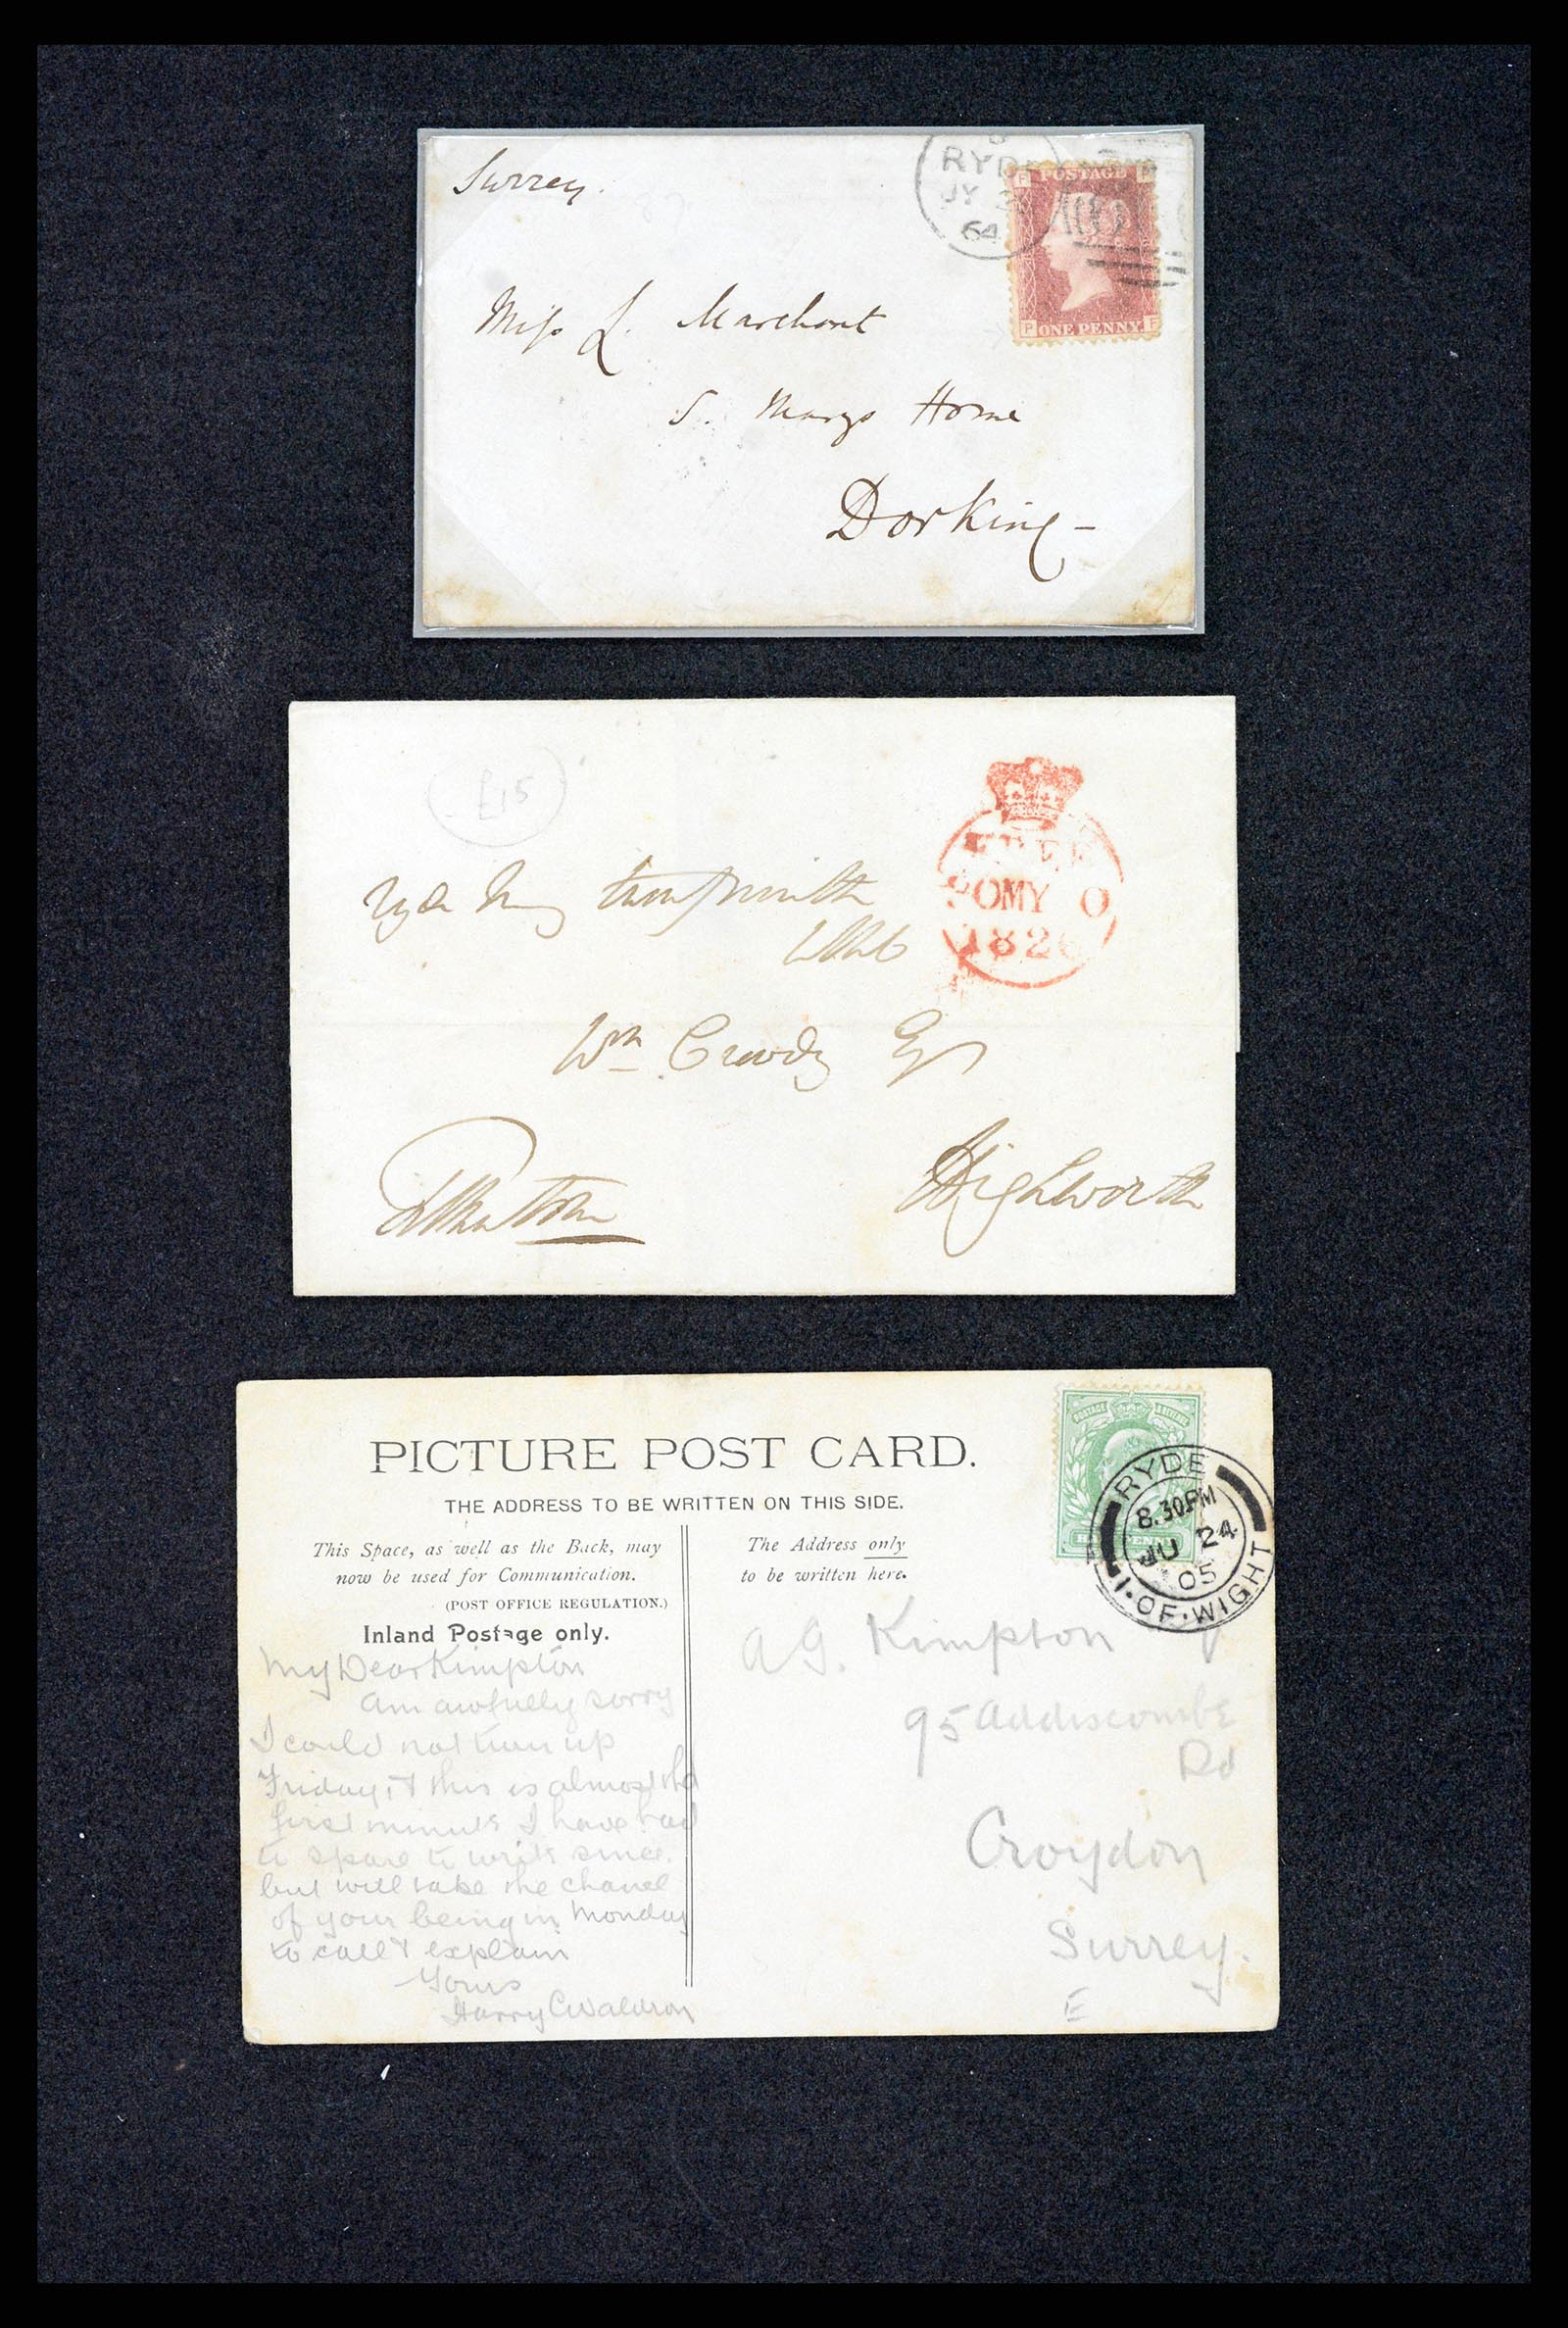 Surrey.
RYDE
JY
64
POSTAGE
ONE PENNY
P F
Miss L. Marchant
S. Marys Home
Dorking-
£15
FREE
1826
Wm Crowdy Esqr
Highworth
PICTURE POST CARD.
THE ADDRESS TO BE WRITTEN ON THIS SIDE.
This Space, as well as the Back, may
now be used for Communication.
(POST OFFICE REGULATION.)
Inland Postage only.
The Address only
to be written here.
RYDE
8.30PM
JU 24
05
I.OF.WIGHT
My Dear Kimpton
Am awfully sorry
I could not turn up
Friday, & this is almost the
first minute I have had
to spare to write since.
but will take the chance
of your being in Monday
to call & explain
Yours
Harry C Waldron
A G. Kimpton
95 Addiscombe
Rd
Croydon
Surrey.
E